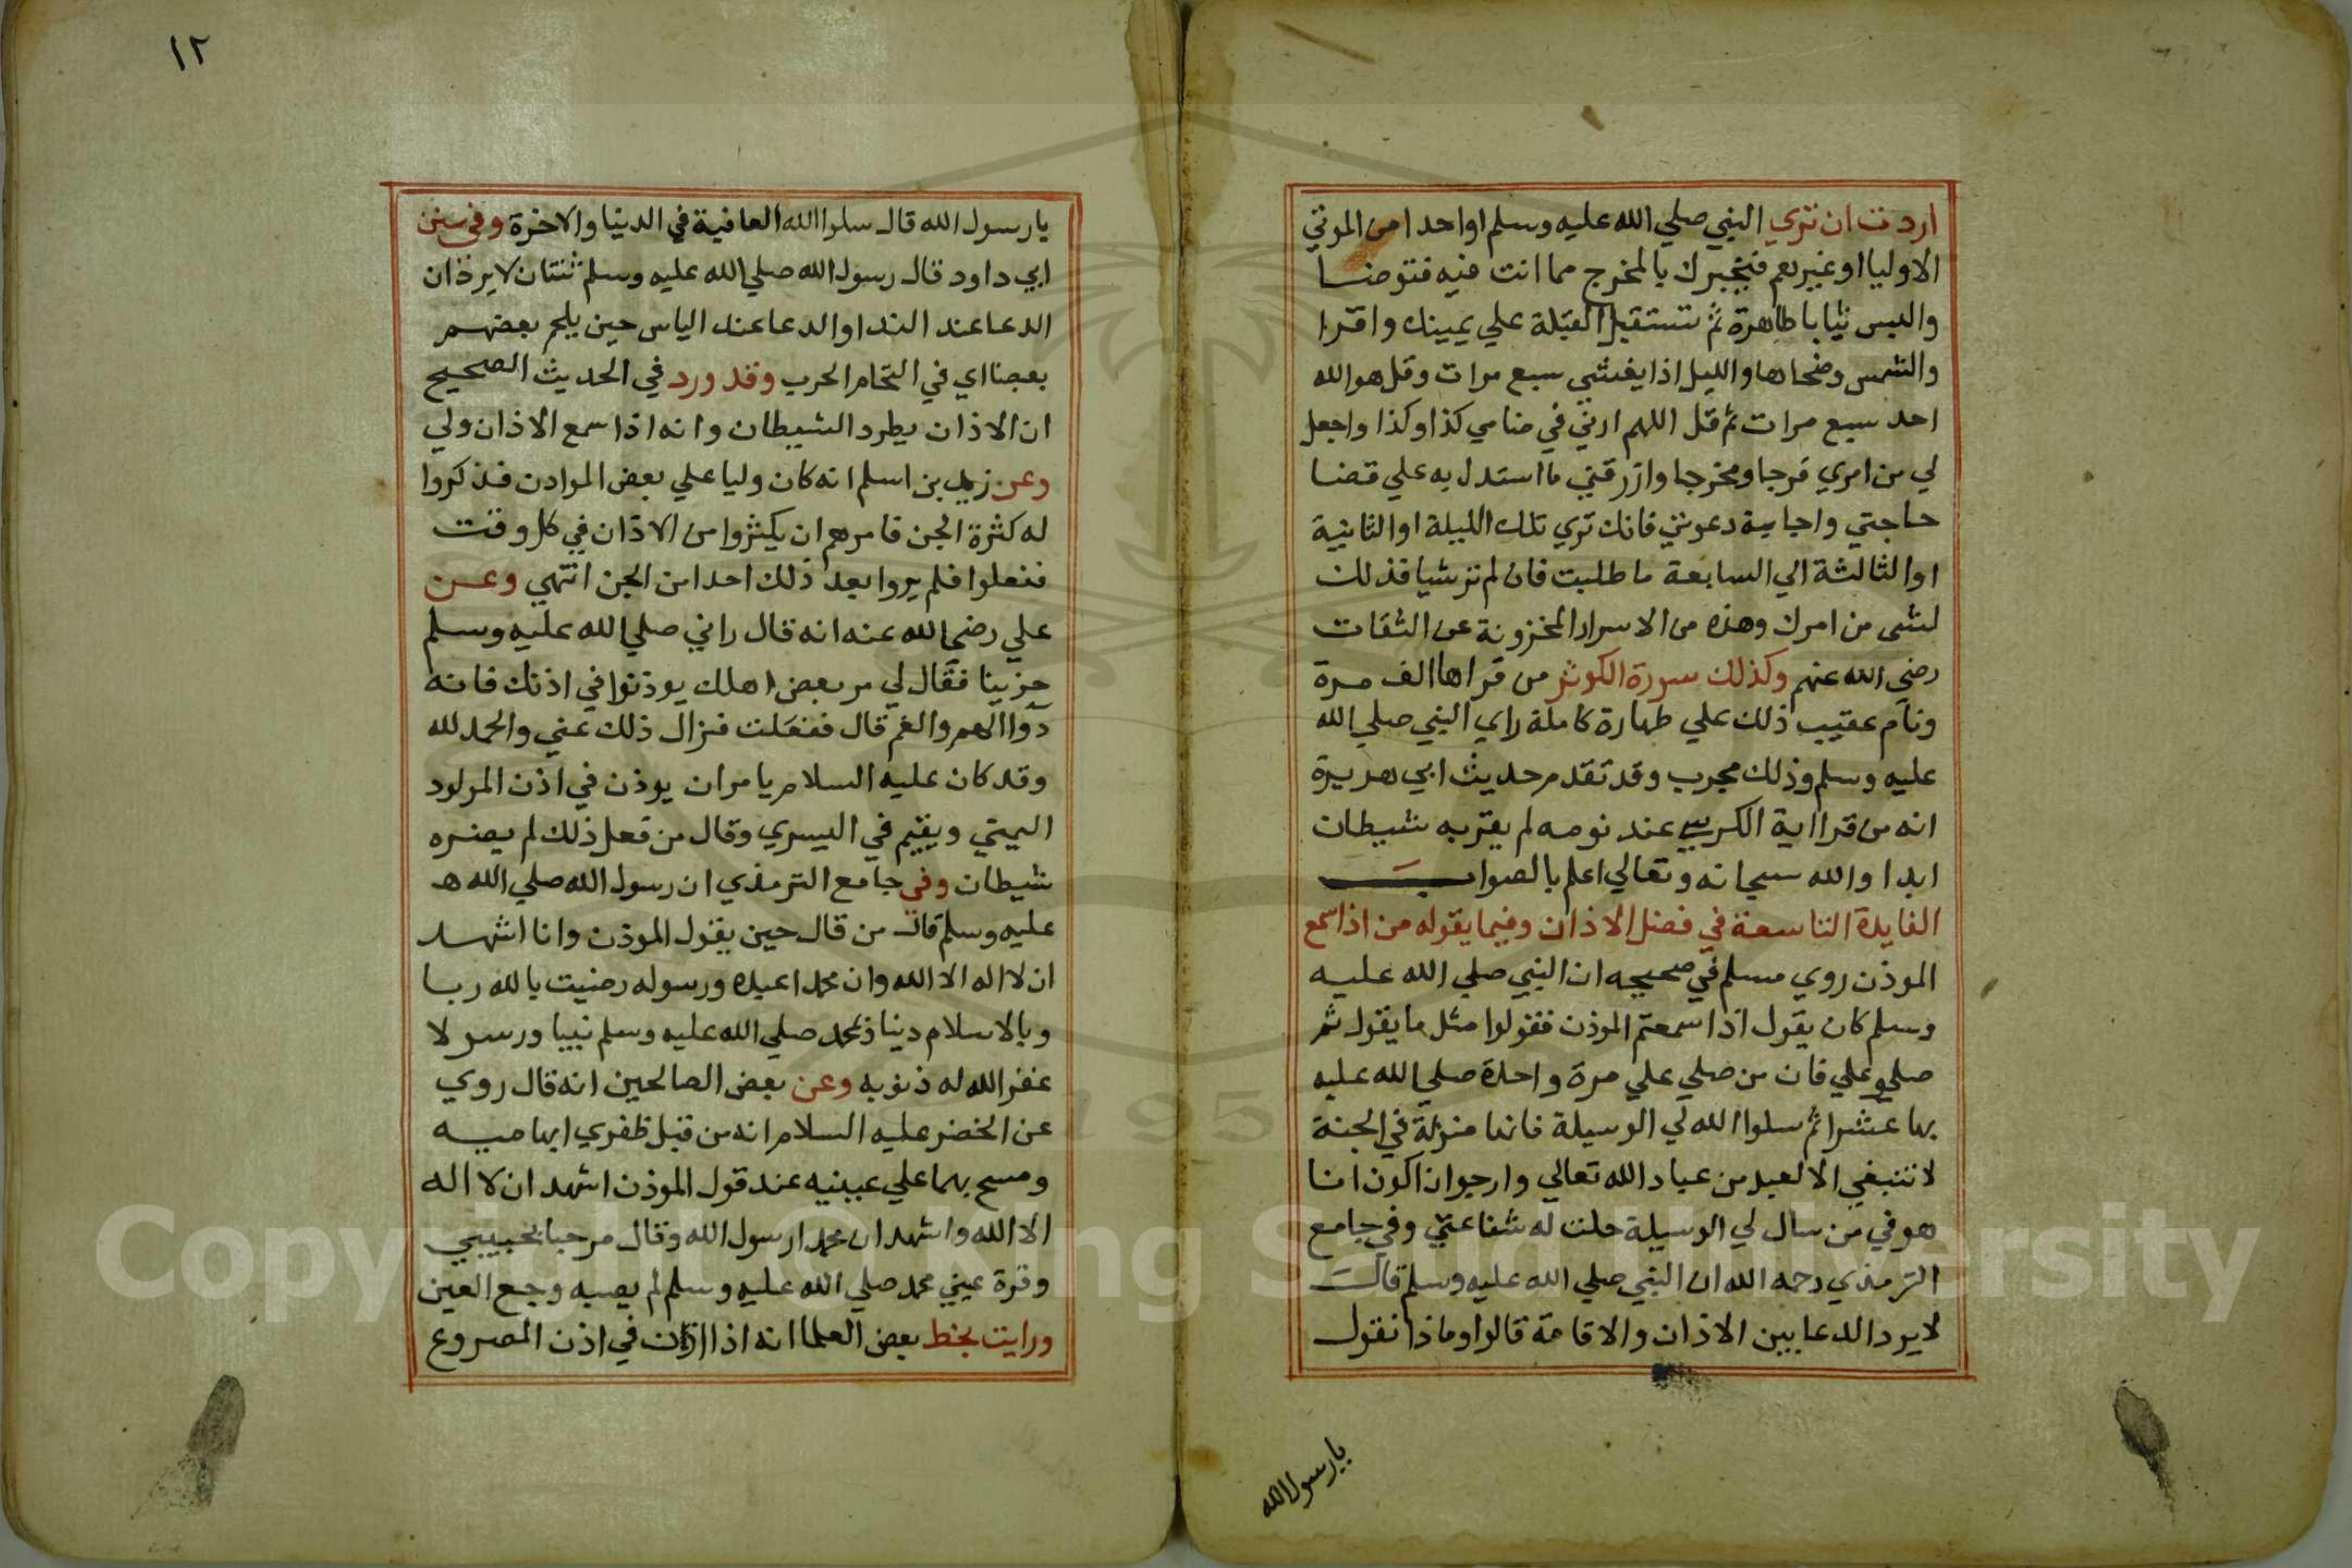 اردت ان تري النبي صلي الله عليه وسلم او احدا من الموتي
الاوليا او غيرهم فيخبرك بالمخرج مما انت فيه فتوضا
والبس ثيابا طاهرة ثم تستقبل القبلة علي يمينك واقرا
والشمس وضحاها والليل اذا يغشي سبع مرات وقل هو الله
احد سبع مرات ثم قل اللهم ارني في منامي كذا وكذا واجعل
لي من امري فرجا ومخرجا وارزقني ما استدل به علي قضا
حاجتي واجابة دعوتي فانك تري تلك الليلة او الثانية
او الثالثة الي السابعة ما طلبت فان لم تر شيا فذلك
لشي من امرك وهذه من الاسرار المخزونة عن الثقات
رضي الله عنهم وكذلك سورة الكوثر من قراها الف مرة
ونام عقيب ذلك علي طهارة كاملة راي النبي صلي الله
عليه وسلم وذلك مجرب وقد تقدم حديث ابي هريرة
انه من قرا اية الكرسي عند نومه لم يقربه شيطان
ابدا والله سبحانه وتعالي اعلم بالصواب
الفايدة التاسعة في فضل الاذان وفيما يقوله من اذا سمع
الموذن روي مسلم في صحيحه ان النبي صلي الله عليه
وسلم كان يقول اذا سمعتم الموذن فقولوا مثل ما يقول ثم
صلو علي فان من صلي علي مرة واحدة صلي الله عليه
بها عشرا ثم سلوا الله لي الوسيلة فانها منزلة في الجنة
لا تنبغي الا لعبد من عباد الله تعالي وارجوا ان اكون انا
هو في من سال لي الوسيلة حلت له شفاعتي وفي جامع
الترمذي رحمه الله ان النبي صلي الله عليه وسلم قال
لا يرد الدعا بين الاذان والاقامة قالوا وماذا نقول
يا رسول الله
١٢
يا رسول الله قال سلوا الله العافية في الدنيا والاخرة وفي سنن
ابي داود قال رسول الله صلي الله عليه وسلم ثنتان لا يردان
الدعا عند الندا والدعا عند الباس حين يلحم بعضهم
بعضا اي في التحام الحرب وقد ورد في الحديث الصحيح
ان الاذان يطرد الشيطان وانه اذا سمع الاذان ولي
وعن زيد بن اسلم انه كان وليا علي بعض الموادن فذكروا
له كثرة الجن فامرهم ان يكثروا من الاذان في كل وقت
ففعلوا فلم يروا بعد ذلك احدا من الجن انتهي وعن
علي رضي الله عنه انه قال راني صلي الله عليه وسلم
حزينا فقال لي مر بعض اهلك يوذنوا في اذنك فانه
دوا الهم والغم قال ففعلت فزال ذلك عني والحمد لله
وقد كان عليه السلام يامر ان يوذن في اذن المولود
اليمني ويقيم في اليسري وقال من فعل ذلك لم يضره
شيطان وفي جامع الترمذي ان رسول الله صلي الله ه
عليه وسلم قال من قال حين يقول الموذن وانا اشهد
ان لا اله الا الله وان محمدا عبده ورسوله رضيت بالله ربا
وبالاسلام دينا وبمحمد صلي الله عليه وسلم نبيا ورسولا
غفر الله له ذنوبه وعن بعض الصالحين انه قال روي
عن الخضر عليه السلام انه من قبل ظفري ابهاميه
ومسح بهما علي عينيه عند قول الموذن اشهد ان لا اله
الا الله واشهد ان محمدا رسول الله وقال مرحبا بحبيبي
وقرة عيني محمد صلي الله عليه وسلم لم يصبه وجع العين
ورايت بخط بعض العلما انه اذا اذن في اذن المصروع
Copyright © King Saud University
195